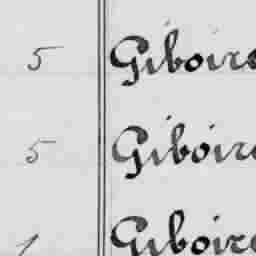 5 Giboire
5 Giboire
1 Giboire